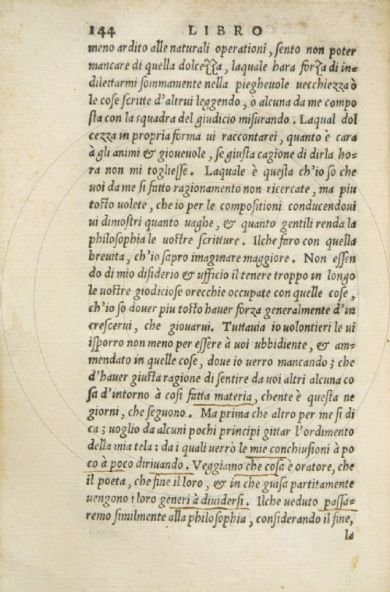 144 LIBRO
meno ardito alle naturali operationi, sento non poter
mancare di quella dolcezza, laquale hara forza di in-
dilettarmi sommamente nella pieghevole vecchiezza ò
le cose scritte d'altrui leggendo, ò alcuna da me compo
sta con la squadra del giudicio misurando. Laqual dol
cezza in propria forma ui raccontarei, quanto è cara
à gli animi & giouevole, se giusta cagione di dirla ho-
ra non mi togliesse. Laquale è questa ch'io so che
uoi da me sì fatto ragionamento non ricercate, ma piu
tosto uolete, che io per le compositioni conducendoui
ui dimostri quanto uaghe, & quanto gentili renda la
philosophia le uostre scritture. Ilche faro con quella
brevita, ch'io sapro imaginare maggiore. Non essen
do di mio disiderio & ufficio il tenere troppo in longo
le uostre giudiciose orecchie occupate con quelle cose,
ch'io so douer piu tosto hauer forza generalmente d'in
crescerui, che giouarui. Tuttauia io uolontieri le ui
isporro non meno per essère à uoi ubbidiente, & am-
mendato in quelle cose, doue io uerro mancando; che
d'hauer giusta ragione di sentire da uoi altri alcuna co
sa d'intorno à così fatta materia, chente è questa ne
giorni, che seguono. Ma prima che altro per me si di
ca; uoglio da alcuni pochi principi gittar l'ordimento
della mia tela: da i quali uerrò le mie conchiusioni à po
co à poco diriuando. Veggiamo che cosa è oratore, che
il poeta, che fine il loro, & in che guisa partitamente
uengono i loro generi à diuidersi. Ilche ueduto passa-
remo similmente alla philosophia, considerando il fine,
la